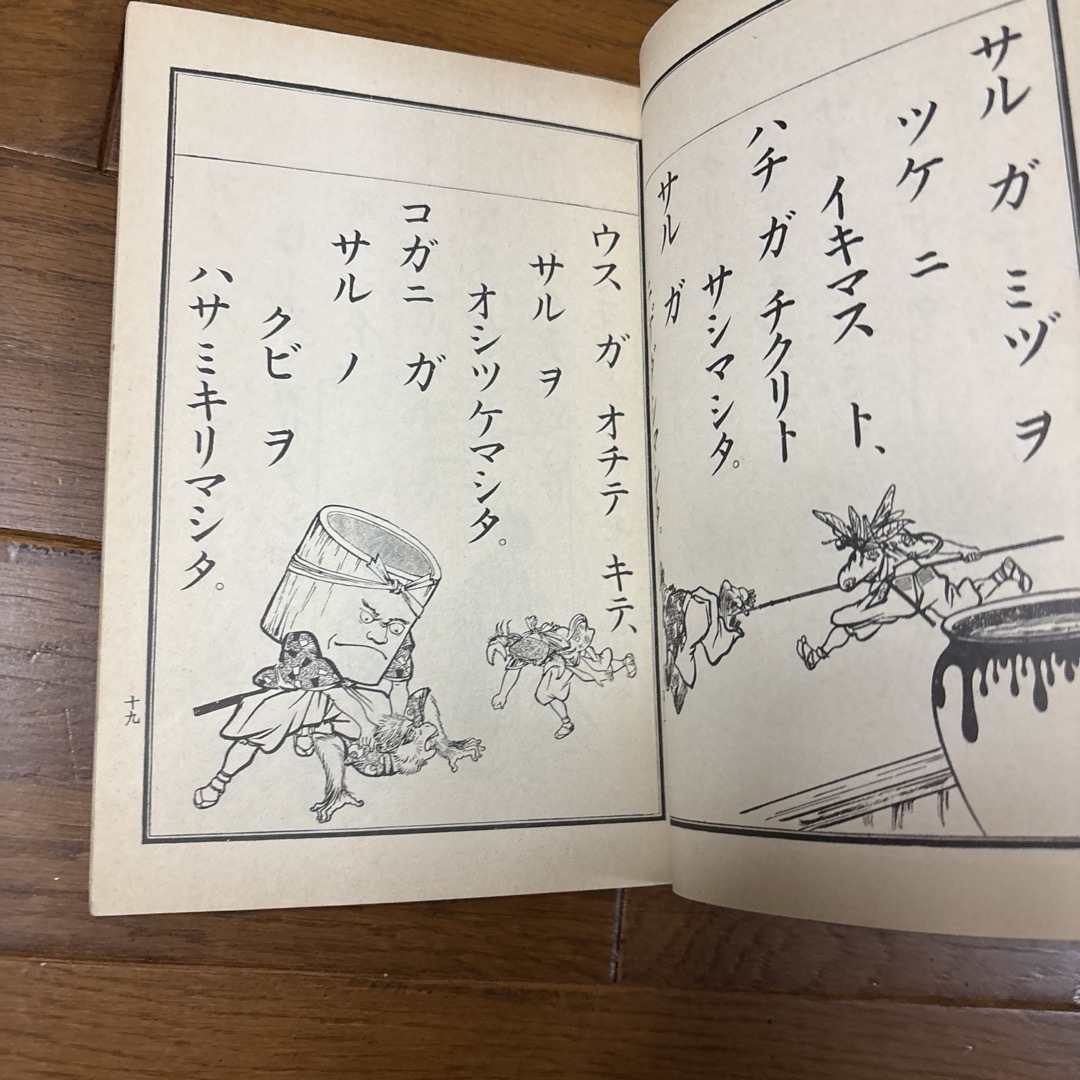 サルガミヅヲ
ツケニ
イキマスト、
ハチガチクリト
サシマシタ。
サルガ
ウスガオチテキテ、
サルヲ
オシツケマシタ。
コガニガ
サルノ
クビヲ
ハサミキリマシタ。
十九